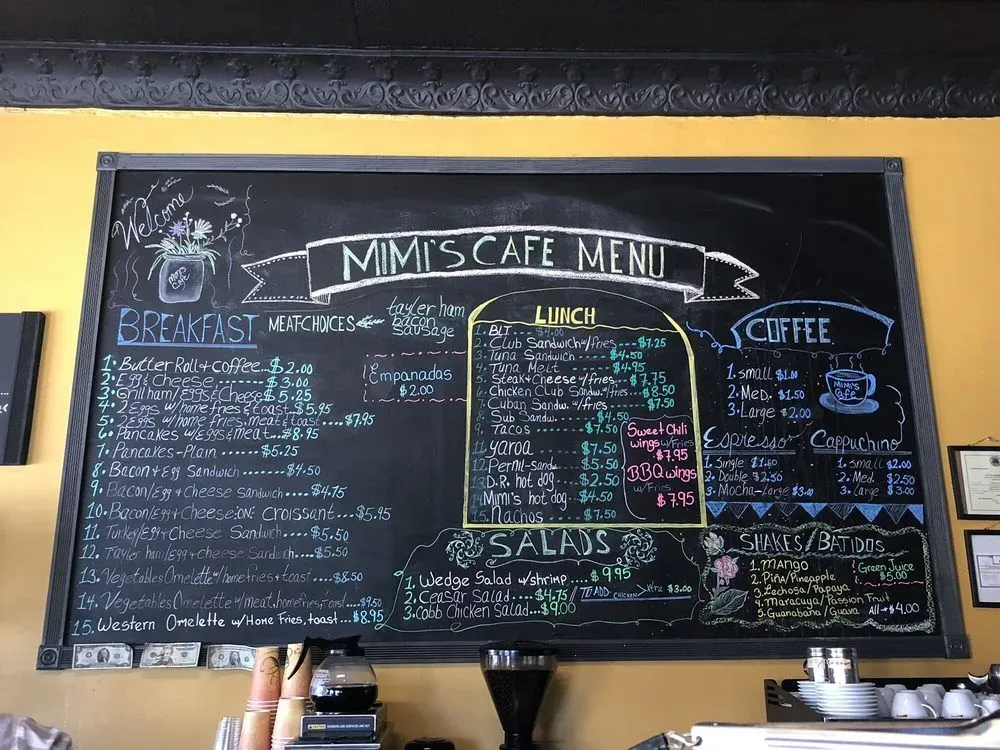 Welcome
Mimi's
Cafe
MIMI'S CAFE MENU
BREAKFAST
MEAT-CHOICES
tayler ham
bacon
Sausage
Empanadas
$2.00
1. Butter Roll + coffee... $2.00
2. Egg & Cheese ------- $3.00
3. Grill ham/Eggs & Cheese $5.25
4. 2 Eggs w/ home fries & toast. $5.95
5. 2 Eggs w/ home fries, meat & toast.... $7.95
6. Pancakes w/Eggs & meat... $8.95
7. Pancakes-Plain.... $5.25
8. Bacon + Egg Sandwich .... $4.50
9. Bacon/Egg + Cheese sandwich .... $4.75
10. Bacon/Egg + Cheese: ONE Croissant.... $5.95
11. Turkey/Egg + cheese Sandwich.... $5.50
12. Tayler ham/Egg + cheese Sandwich.... $5.50
13. Vegetables Omelette w/ home fries + toast .... $8.50
14. Vegetables Omelette w/ meat, homefries, toast .... $9.50
15. Western Omelette w/ Home Fries, toast.... $8.95
LUNCH
1. BLT.... $4.00
2. Club Sandwich w/fries... $7.25
3. Tuna Sandwich .... $4.50
4. Tuna Melt .... $4.95
5. Steak + Cheese w/ fries... $7.75
6. Chicken Club Sandw. w/fries... $8.50
7. Cuban Sandw. w/fries... $7.50
8. Sub Sandw. ... $4.50
9. Tacos ..... $7.50
11. yaroa $7.50
12. Pernil-Sandw $5.50
13. D.R. hot dog .... $2.50
14. Mimi's hot dog .... $4.50
15. Nachos ..... $7.50
Sweet Chili
wings w/Fries
$7.95
BBQ wings
w/Fries
$7.95
SALADS
1. Wedge Salad w/shrimp .... $9.95
2. Ceasar Salad.... $4.75/ TO ADD CHICKEN Xtra $3.00
3. Cobb Chicken Salad... $9.00
COFFEE
1. small $1.00
2. Med. $1.50
3. Large $2.00
MIMI'S
Cafe
Espresso
1. Single $1.60
2. Double $2.50
3. Mocha-Large $3.00
Cappuchino
1. small $2.00
2. Med. $2.50
3. Large $3.00
SHAKES/BATIDOS
1. MANGO
2. Piña/Pineapple
3. Lechosa/Papaya
4. Maracuya/Passion Fruit
5. Guanabana/Guava All → $4.00
Green Juice
$5.00